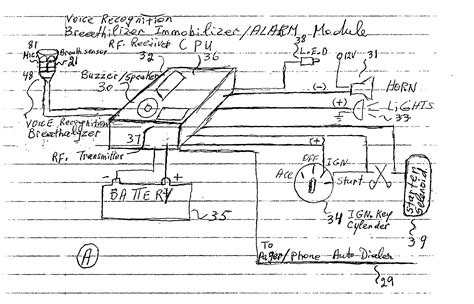 Voice Recognition
Breathilizer Immobilizer/ALARM Module
81
Mic
Breath sensor
21
R.F. Receiver
CPU
32
36
38
L.E.D
12V
31
Buzzer/speaker
30
48
(-)
HORN
(+)
LiGHTS
33
VOICE Recognition
Breathalyzer
37
R.F. Transmitter
(+)
OFF
IGN
Acc
Start
- +
BATTERY
35
34
IGN. Key
Cylender
Starter
Solenoid
39
A
To
Pager/Phone Auto Dialer
29